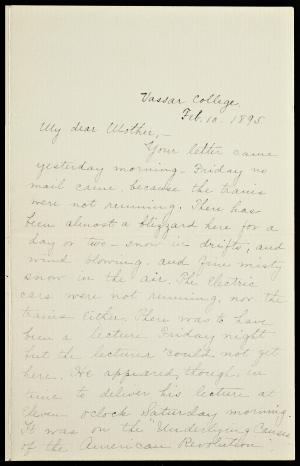 Vassar College,
Feb. 10. 1895
My dear Mother,-
Your letter came
yesterday morning. Friday no
mail came, because the trains
were not running. There has
been almost a blizzard here for a
day or two - snow in drifts, and
wind blowing, and fine misty
snow in the air. The Electric
cars were not running, nor the
trains either. There was to have
been a lecture Friday night
but the lecturer could not get
here. He appeared, though, in
time to deliver his lecture at
eleven oclock Saturday morning.
It was on the "Underlying Causes
of the American Revolution".